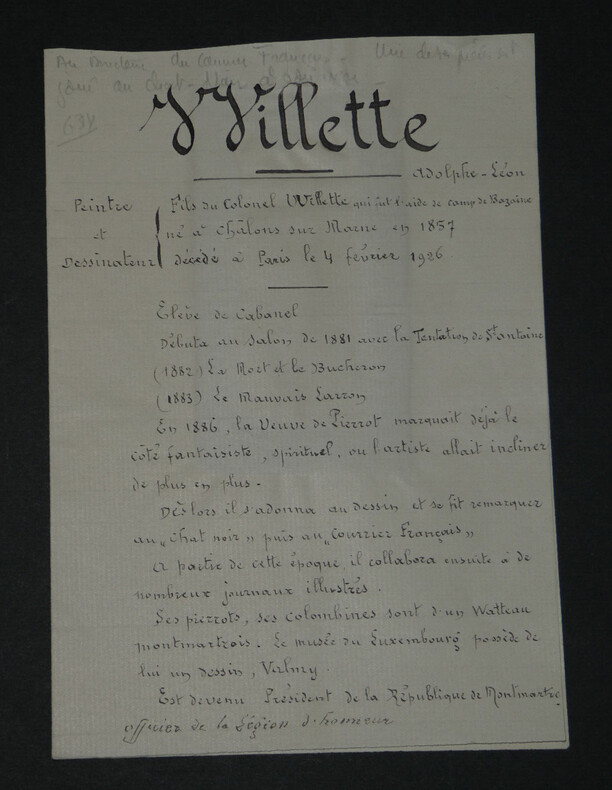 du Courrier Français. Une
joué au Chat-Noir
634
Willette
Adolphe-Léon
Peintre
et
Dessinateur
Fils du Colonel Willette qui fut l'aide de camp de Bazaine
né à Châlons sur Marne en 1857
décédé à Paris le 4 février 1926.
Elève de Cabanel
Débuta au Salon de 1881 avec la Tentation de St Antoine
(1882) La Mort et le Bucheron
(1883) Le Mauvais Larron
En 1886, la Veuve de Pierrot marquait déjà le
côté fantaisiste, spirituel, ou l'artiste allait incliner
de plus en plus.
Dès lors il s'adonna au dessin et se fit remarquer
au "Chat noir" puis au "Courrier Français"
A partie de cette époque, il collabora ensuite à de
nombreux journaux illustrés.
Ses pierrots, ses colombines sont d'un Watteau
montmartrois. Le musée du Luxembourg possède de
lui un dessin, Valmy.
Est devenu Président de la République de Montmartre
officier de la Légion d'honneur